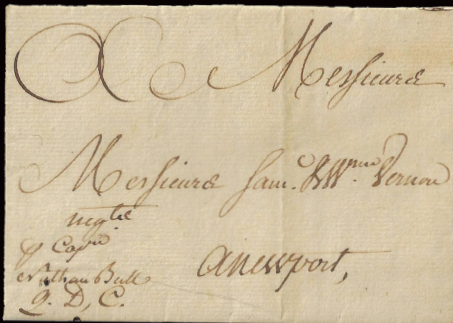 A Messieurs
Messieurs Sam.l & Wm. Vernon
negts
p Capn
Nathan Bull
Q. D, C.
Anewport,